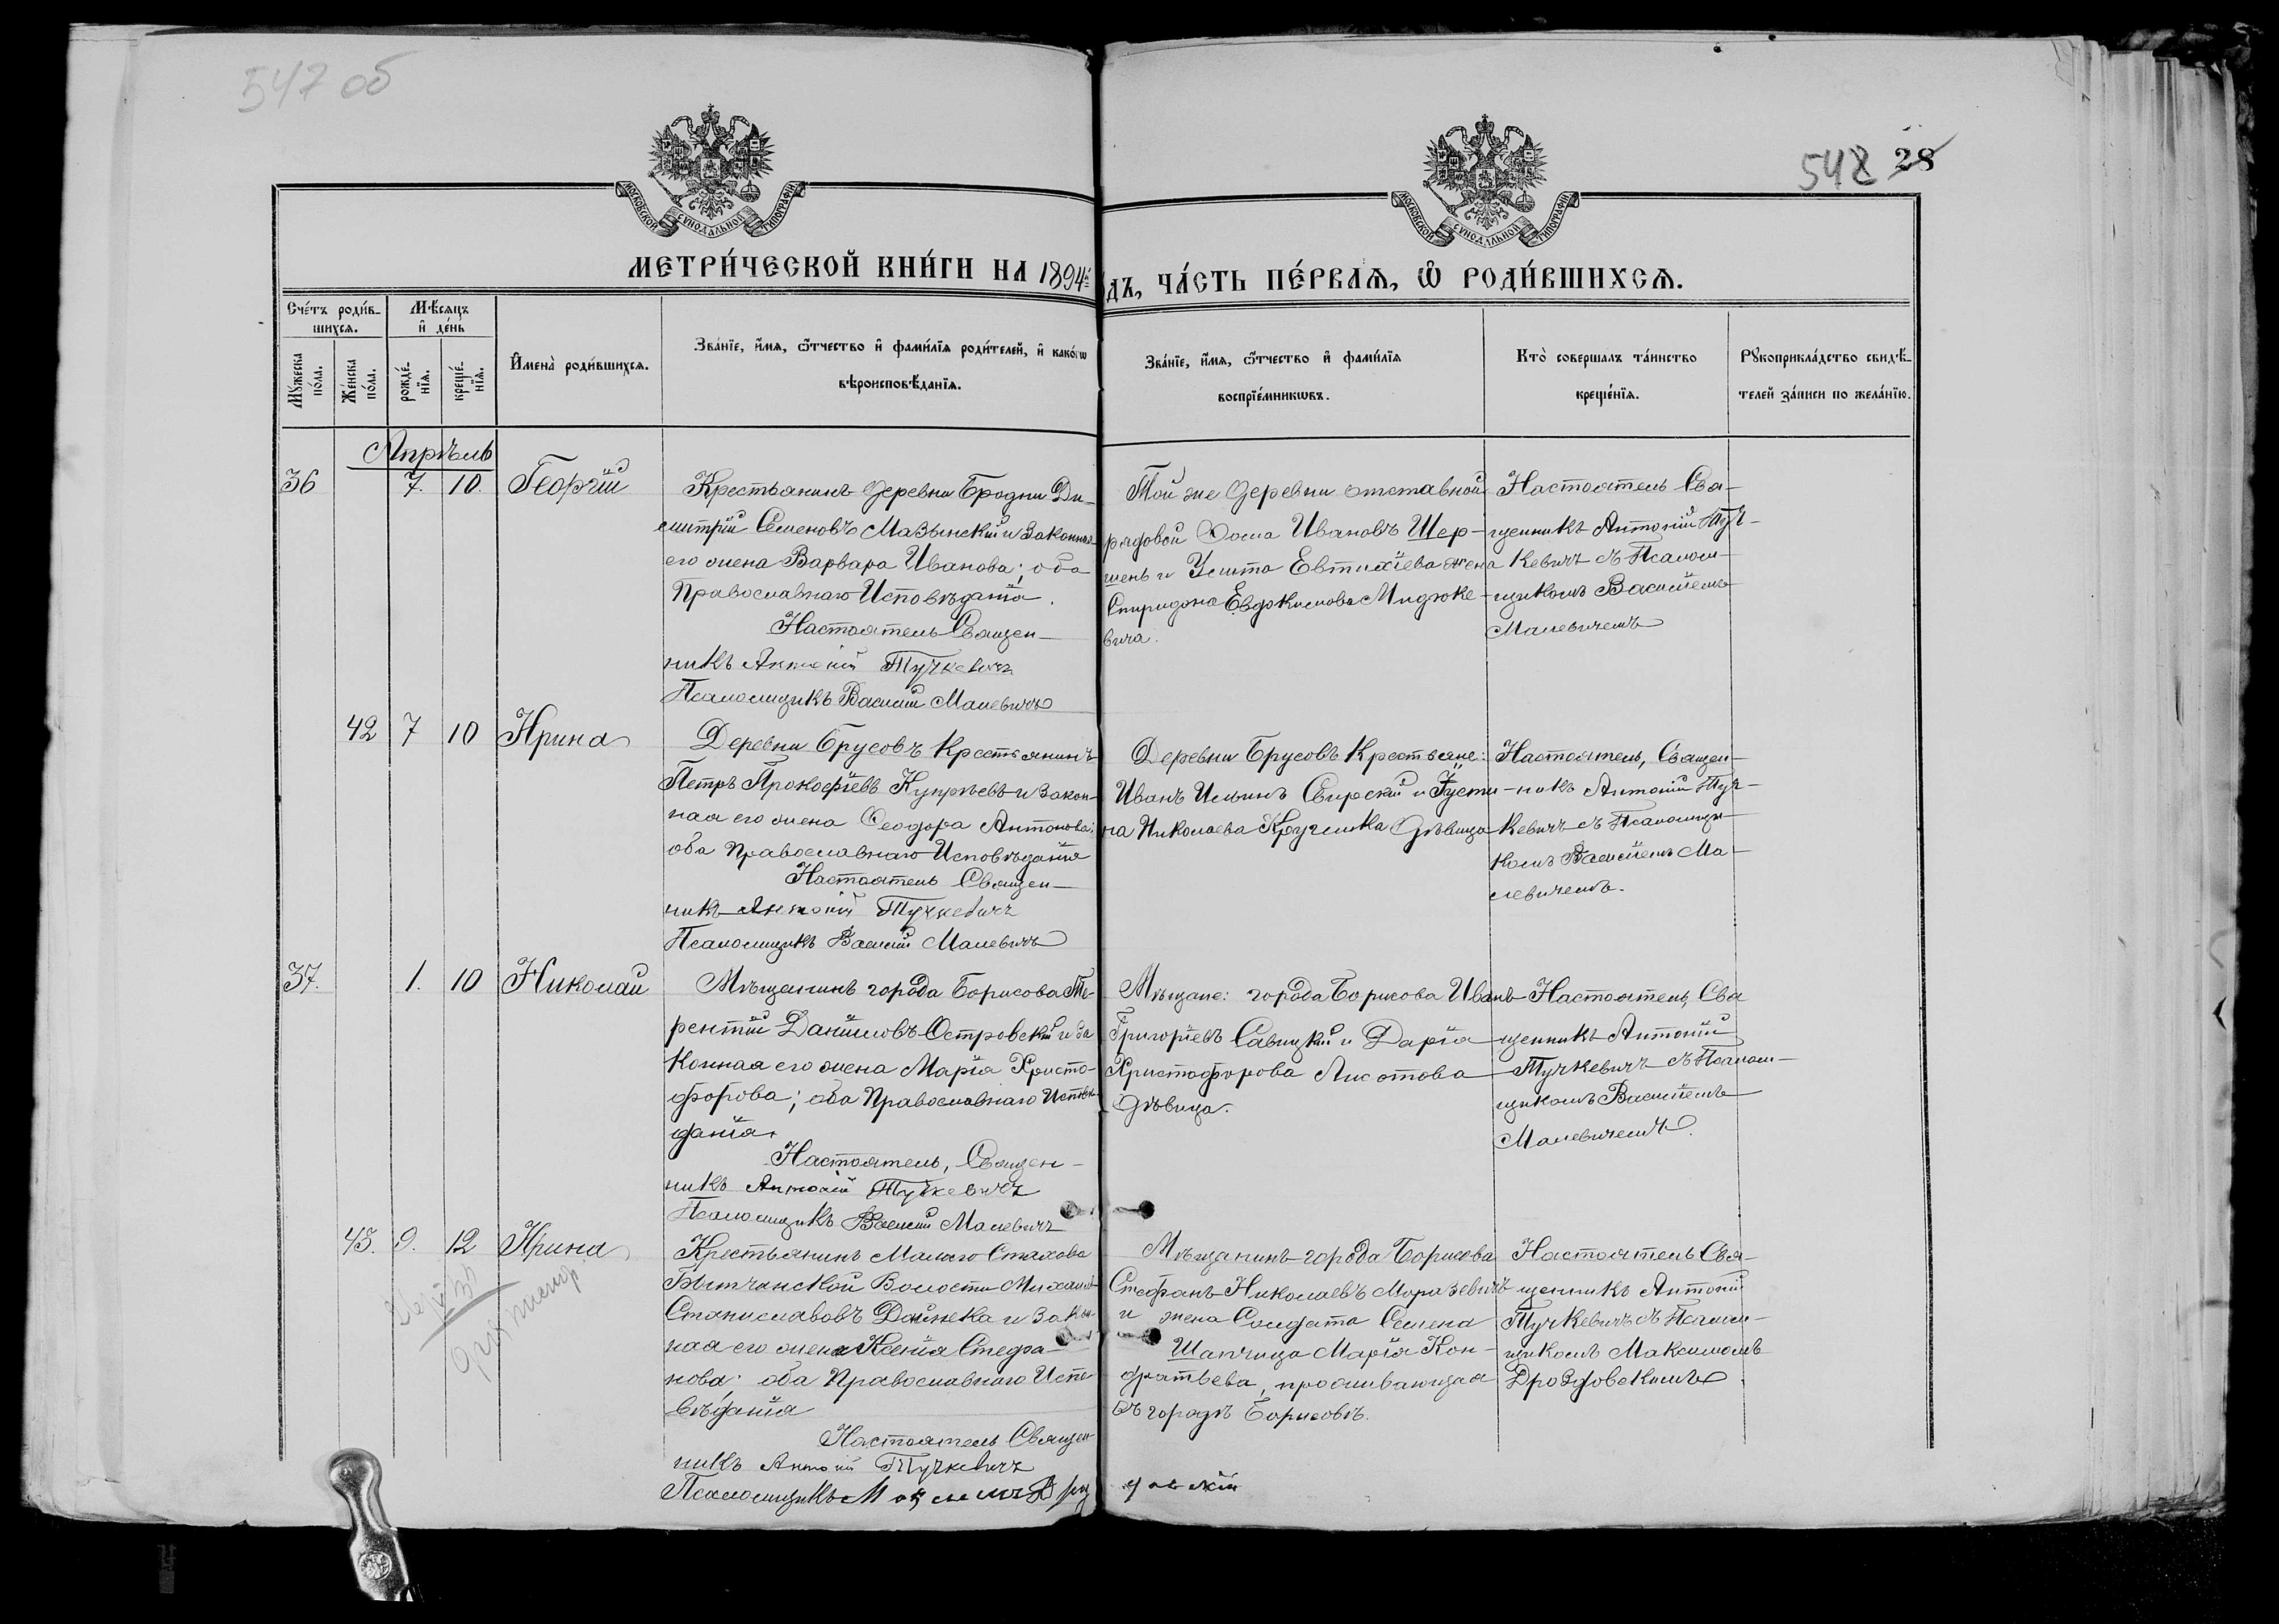 547 об
548 28
МОСКОВСКОЙ СУНОДАЛЬНОЙ ТИПОГРАФІИ
МОСКОВСКОЙ СУНОДАЛЬНОЙ ТИПОГРАФІИ
МЕТРИ́ЧЕСКОЙ КНИ́ГИ НА 1894й
ДЪ, ЧА́СТЬ ПЕ́РВАѦ, Ѽ РОДИ́ВШИХСѦ.
Сче́тъ роди́в-
шихсѧ.
Мѣ́сѧцъ
и҆ де́нь
Мꙋ́жеска
по́ла.
Же́нска
по́ла.
рожде́-
нїѧ.
креще́-
нїѧ.
И҆мена̀ роди́вшихсѧ.
Зва́нїе, и҆́мѧ, ѻ҆́тчество и҆ фами́лїѧ роди́телей, и҆ како́гѡ
вѣроисповѣ́данїѧ.
Зва́нїе, и҆́мѧ, ѻ҆́тчество и҆ фами́лїѧ
воспрїе́мникѡвъ.
Кто̀ соверша́лъ та́инство
креще́нїѧ.
Рꙋкоприкла́дство свидѣ́-
телей за́писи по жела́нїю.
Апрѣль
36 7. 10. Георгій
Крестьянинъ деревни Бродни Ди-
митрій Семеновъ Мазынскій и законная
его жена Варвара Иванова; оба
Православнаго Исповѣданія.
Настоятель Священ-
никъ Антоній Тучкевичъ
Псаломщикъ Василій Малевичъ
Той же деревни отставной
рядовой Ѳома Ивановъ Шер-
шень и Улита Евтихіева жена
Спиридона Евдокимова Мидюке-
вича.
Настоятель Свя-
щенникъ Антоній Туч-
кевичъ съ Псалом-
щикомъ Василіемъ
Малевичемъ
42 7 10 Ирина
Деревни Брусовъ Крестьянинъ
Петръ Прокофіевъ Купрѣевъ и закон-
ная его жена Ѳеодора Антонова;
оба Православнаго Исповѣданія
Настоятель Священ-
никъ Антоній Тучкевичъ
Псаломщикъ Василій Малевичъ
Деревни Брусовъ Крестьяне:
Иванъ Ильинъ Свирскій и Усти-
на Николаева Кручелка дѣвица
Настоятель, Священ-
никъ Антоній Туч-
кевичъ съ Псаломщи-
комъ Василіемъ Ма-
левичемъ.
37. 1. 10 Николай
Мѣщанинъ города Борисова Те-
рентій Даніиловъ Островскій и за
конная его жена Марія Христо-
форова; оба Православнаго Исповѣ-
данія.
Настоятель, Священ-
никъ Антоній Тучкевичъ
Псаломщикъ Василій Малевичъ
Мѣщане: города Борисова Иванъ
Григоріевъ Савицкій и Дарія
Христофорова Лисотова
дѣвица.
Настоятель, Свя
щенникъ Антоній
Тучкевичъ съ Псалом-
щикомъ Василіемъ
Малевичемъ.
43. 9. 12 Ирина
Крестьянинъ Малаго Стахова
Бытчанской Волости Михаилъ
Станиславовъ Дайнека и закон-
ная его жена Ксенія Стефа-
нова; оба Православнаго Испо
вѣданія
Настоятель Священ
никъ Антоній Тучкевичъ
Псаломщикъ Максимъ Дроз
довскій
Мѣщанинъ города Борисова
Стефанъ Николаевъ Моразевичъ
и жена Солдата Семена
Шапчица Марія Кон-
дратьева, проживающая
въ городѣ Борисовѣ.
Настоятель Свя-
щенникъ Антоній
Тучкевичъ съ Псалом-
щикомъ Максимомъ
Дроздовскимъ